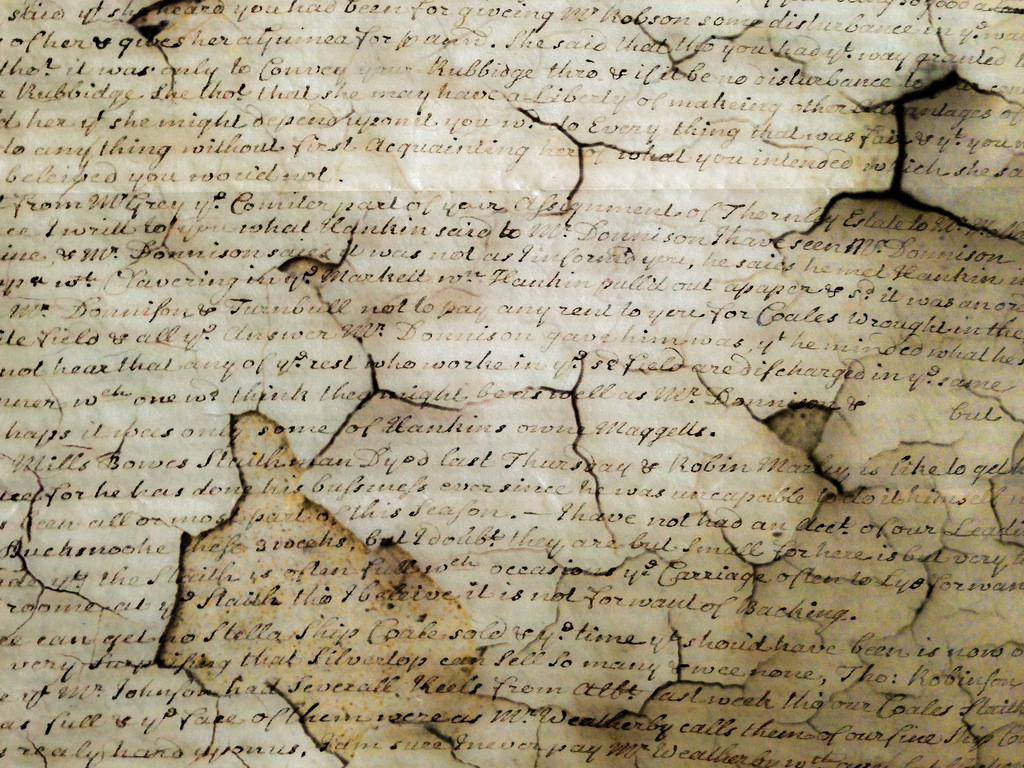 said yt she heard you had been for giveing Mr Robson some disturbance in ye
of her & gives her a Guinea for pamd. She said that tho you had yt way granted
thot it was only to Convey your Rubbidge thro & if it be no disturbance to
Rubbidge She thot that she may have a Liberty of makeing other advantages of
her yt she might depend upont you wd do Every thing that was fair & yt you
do any thing without first Acquainting her of what you intended which she
beleived you would not.
from Mr Grey ye Counterpart of your Assignment of Thernley Estate to Mr
I writt to you what Hankin said to Mr. Donnison I have seen Mr. Donnison
& Mr. Donnison saies it was not as I informd you, he saies he met Hankin
wt Clavering in ye Markett wn Hankin pulld out a paper & sd it was an
Mr. Donnison & Turnbull not to pay any rent to you for Coales wrought in the
field & all ye Answer Mr. Donnison gave him was, yt he minded what he
not hear that any of ye rest who worke in ye sd field are discharged in ye same
wch one wd think they might be as well as Mr. Donnison & but
haps it was only some of Hankins owne Maggetts.
Mills Bowes Staithman Dyed last Thursday & Robin is like to get
for he has done his bussness ever since he was uncapable to do it himself
been all or most part of this Season. — I have not had an Acct. of our
Bucksnooke these 3 weeks, but I doubt they are but Small for here is but very
yt the Staith is often full wch occasions ye Carriage often to Lye for want
roome at ye Staith tho I beleive it is not for want of Backing.
can get no Stella Ship Coale sold & ye time yt should have been is now
very Surprising that Silvertop can Sell so many & wee none, Tho: Robinson
yt Mr. Johnson had Severall Keels from last week tho our Coales Staith
as full & ye face of them were as Mr. Weatherby calls them of our fine Ship
realy hard upon us, I am sure I never pay Mr Weatherby